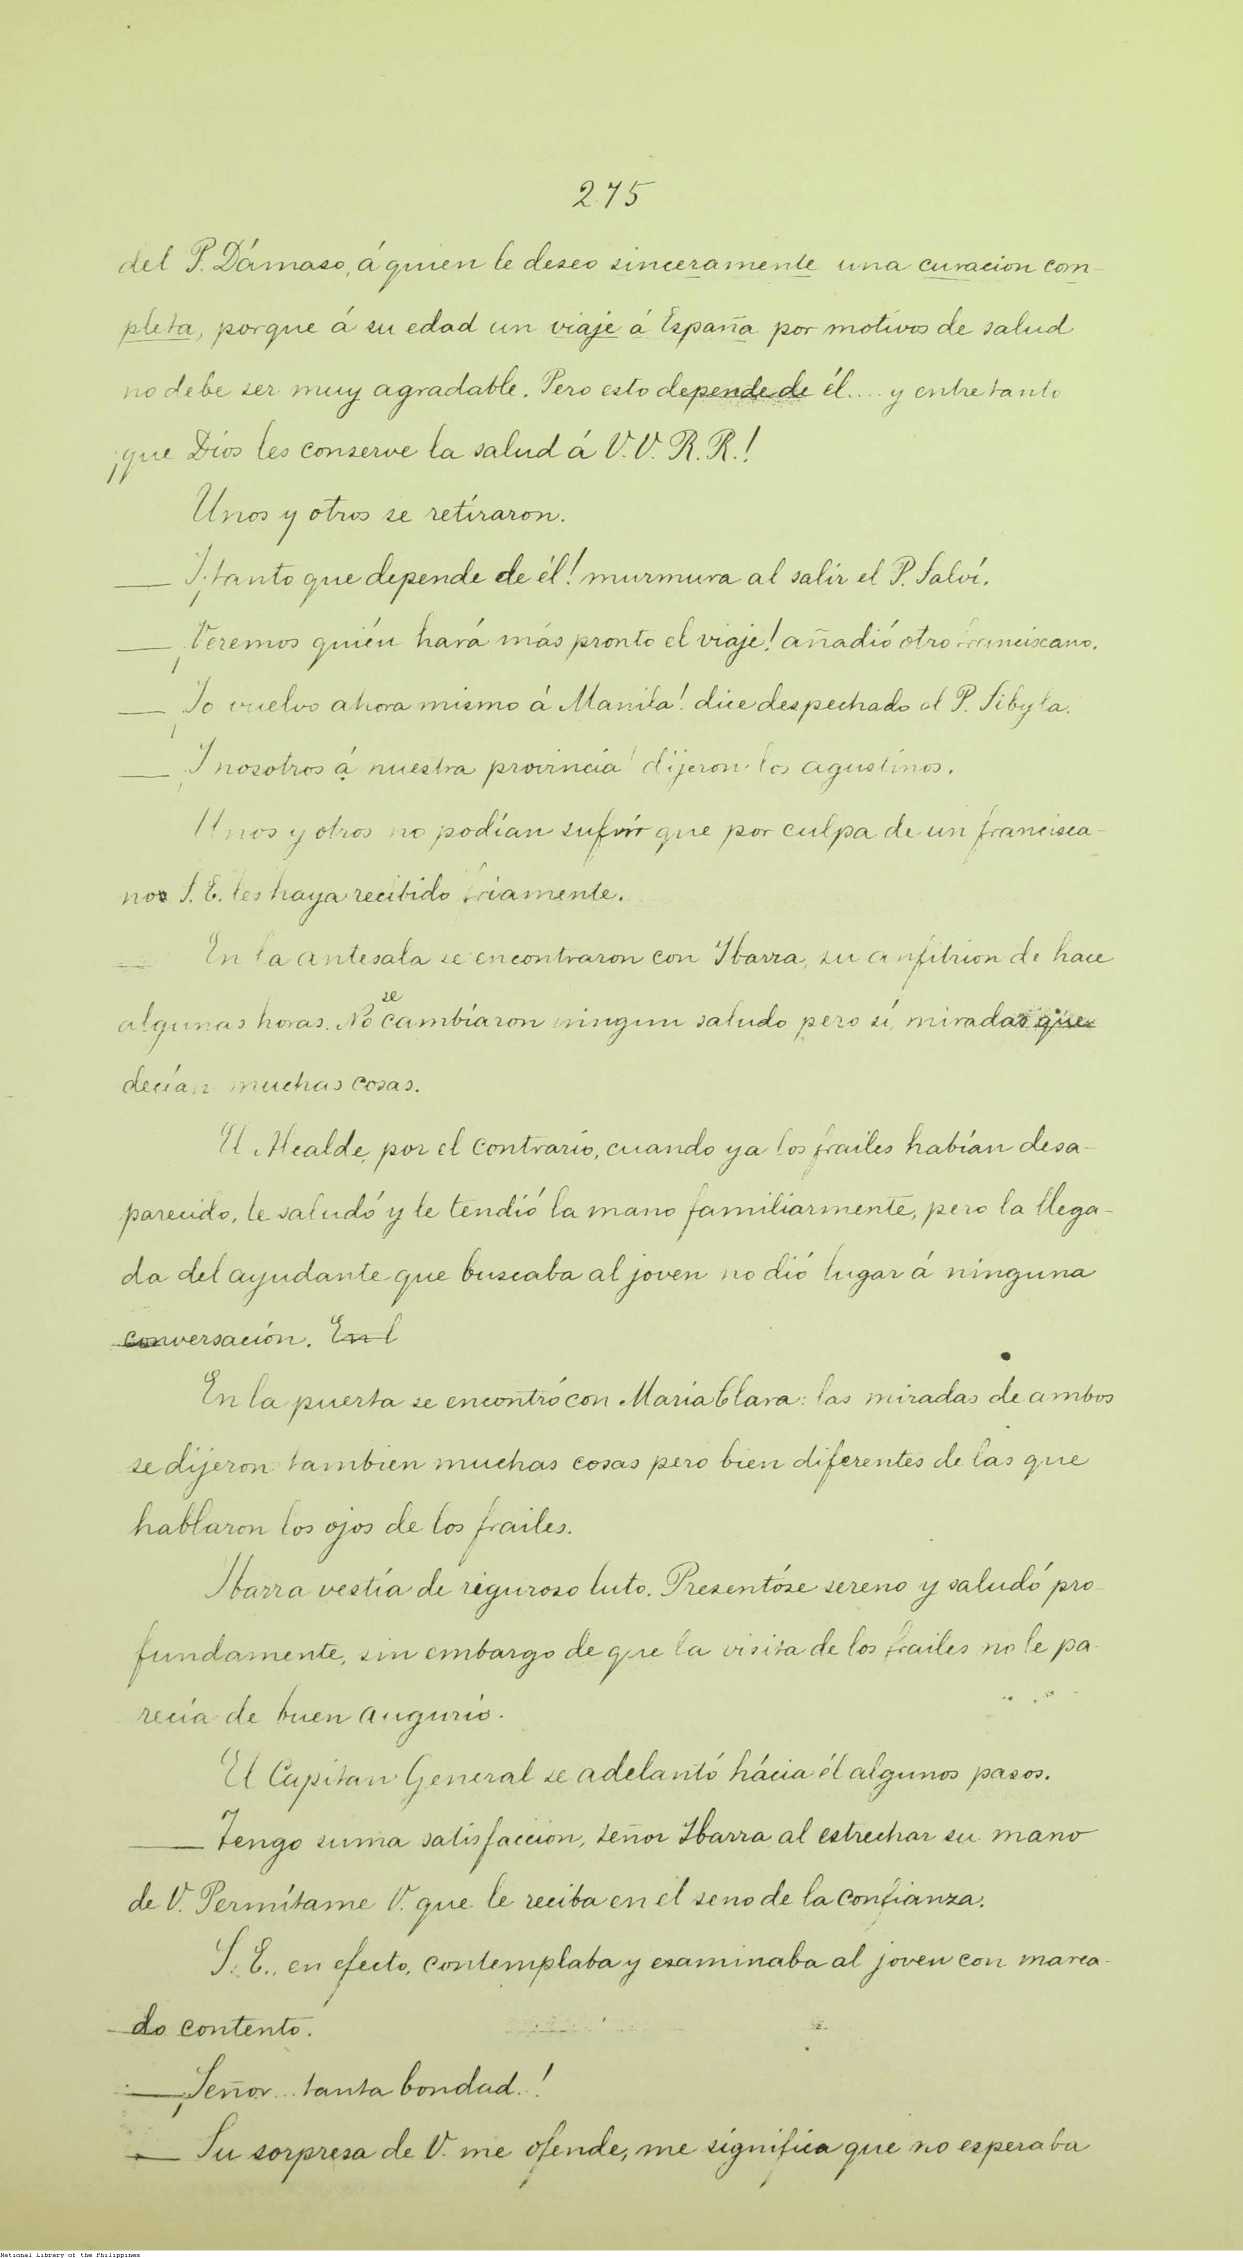 275
del P. Dámaso, á quien le deseo sinceramente una curacion com-
pleta, porque á su edad un viaje á España por motivos de salud
no debe ser muy agradable. Pero esto depende de él.... y entretanto
¡que Dios les conserve la salud á V.V. R. R.!
Unos y otros se retiraron.
— ¡Y tanto que depende de él! murmura al salir el P. Salví.
— ¡Veremos quién hará más pronto el viaje! añadió otro franciscano.
— ¡Yo vuelvo ahora mismo á Manila! dice despechado el P. Sibyla.
— ¡Y nosotros á nuestra provincia! dijeron los agustinos.
Unos y otros no podían sufrir que por culpa de un francisca-
no S. E. les haya recibido friamente.
En la antesala se encontraron con Ibarra, su anfitrion de hace
algunas horas. No se cambíaron ningun saludo pero sí, miradas que
decían muchas cosas.
El Alcalde, por el contrario, cuando ya los frailes habían desa-
parecido, le saludó y le tendió la mano familiarmente, pero la llega-
da del ayudante que buscaba al joven no dió lugar á ninguna
conversación. En l
En la puerta se encontró con María Clara: las miradas de ambos
se dijeron tambien muchas cosas pero bien diferentes de las que
hablaron los ojos de los frailes.
Ibarra vestía de riguroso luto. Presentóse sereno y saludó pro-
fundamente, sin embargo de que la visita de los frailes no le pa-
recía de buen augurio.
El Capitan General se adelantó hácia él algunos pasos.
— Tengo suma satisfaccion, señor Ibarra al estrechar su mano
de V. Permítame V. que le reciba en el seno de la confianza.
S. E., en efecto, contemplaba y examinaba al joven con marca-
do contento.
— ¡Señor... tanta bondad..!
— Su sorpresa de V. me ofende, me significa que no esperaba
National Library of the Philippines